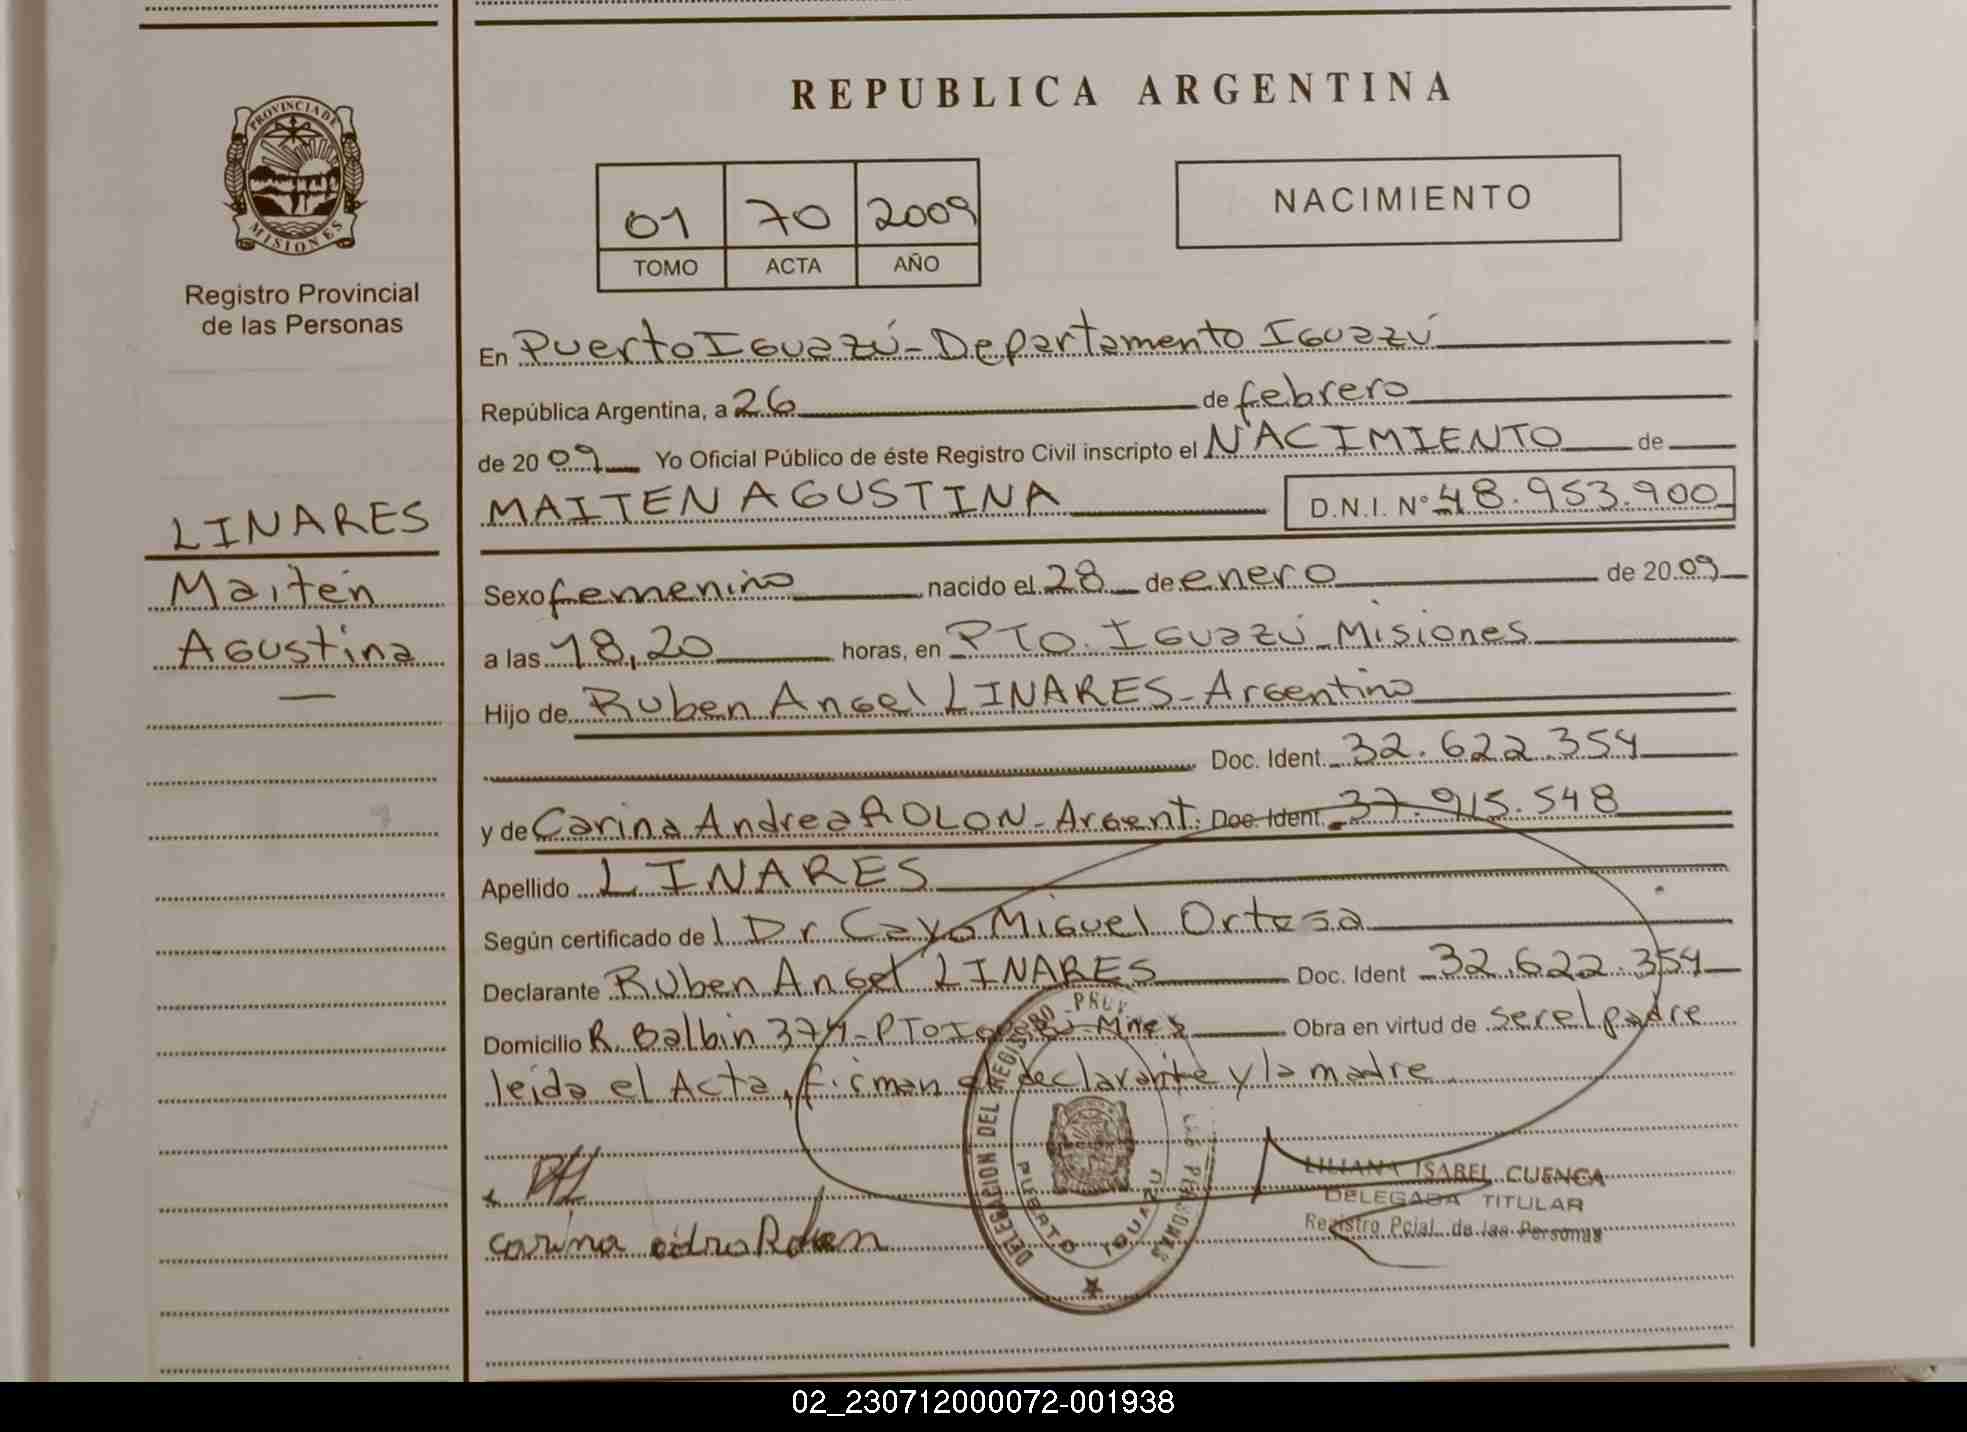 REPUBLICA ARGENTINA
PROVINCIA DE MISIONES
Registro Provincial
de las Personas
01 70 2009
TOMO ACTA AÑO
NACIMIENTO
En Puerto Iguazú - Departamento Iguazú
República Argentina, a 26 de febrero
de 2009 Yo Oficial Público de éste Registro Civil inscripto el NACIMIENTO de
MAITEN AGUSTINA D.N.I. Nº 48.953.900
LINARES
Maiten
Agustina
Sexo femenino nacido el 28 de enero de 2009
a las 18,20 horas, en PTO. Iguazú - Misiones
Hijo de Ruben Angel LINARES - Argentino
Doc. Ident. 32.622.354
y de Carina Andrea ROLON - Argent. Doc. Ident. 37.915.548
Apellido LINARES
Según certificado de l Dr Cayo Miguel Ortega
Declarante Ruben Angel LINARES Doc. Ident 32.622.354
Domicilio R. Balbin 374 - PTO Iguazú - Mnes Obra en virtud de ser el padre
leida el Acta, firman el declarante y la madre
carina
DELEGACION DEL REGISTRO PROV. LAS PERSONAS
PUERTO IGUAZU
LILIANA ISABEL CUENCA
DELEGADA TITULAR
Registro Pcial. de las Personas
02_230712000072-001938